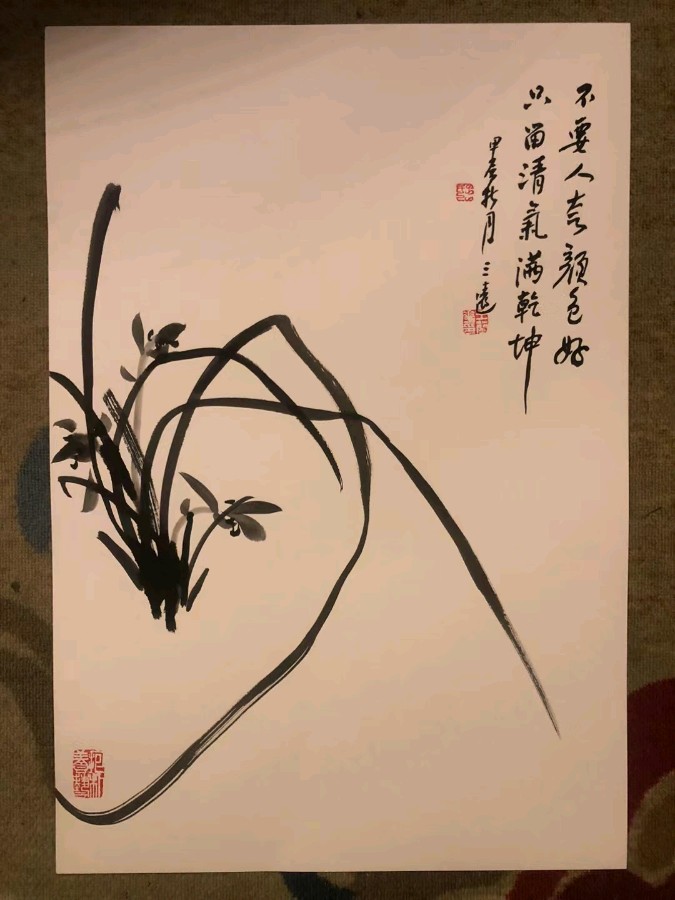 不要人夸顔色好
只留清氣滿乾坤
甲辰秋月 三遠